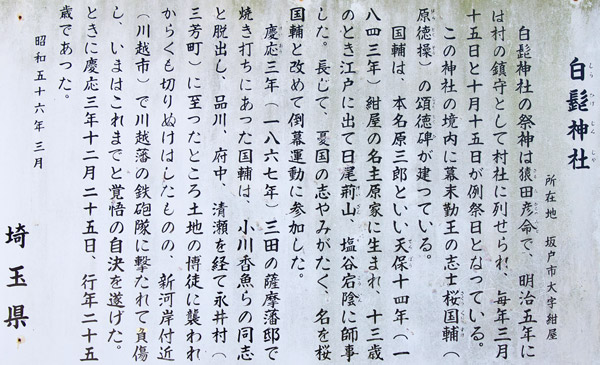 白髭神社
しら ひげ じん じゃ
所在地 坂戸市大字紺屋
白髭神社の祭神は猿田彦命で、明治五年に
は村の鎮守として村社に列せられ、毎年三月
十五日と十月十五日が例祭日となっている。
この神社の境内に幕末勤王の志士桜国輔（
原徳操）の頌徳碑が建っている。
国輔は、本名原三郎といい天保十四年（一
八四三年）紺屋の名主原家に生まれ、十三歳
のとき江戸に出て日尾荊山、塩谷宕陰に師事
した。長じて、憂国の志やみがたく、名を桜
国輔と改めて倒幕運動に参加した。
慶応三年（一八六七年）三田の薩摩藩邸で
焼き打ちにあった国輔は、小川香魚らの同志
と脱出し、品川、府中、清瀬を経て永井村（
三芳町）に至ったところ土地の博徒に襲われ
からくも切りぬけはしたものの、新河岸付近
（川越市）で川越藩の鉄砲隊に撃たれて負傷
し、いまはこれまでと覚悟の自決を遂げた。
ときに慶応三年十二月二十五日、行年二十五
歳であった。
昭和五十六年三月
埼玉県